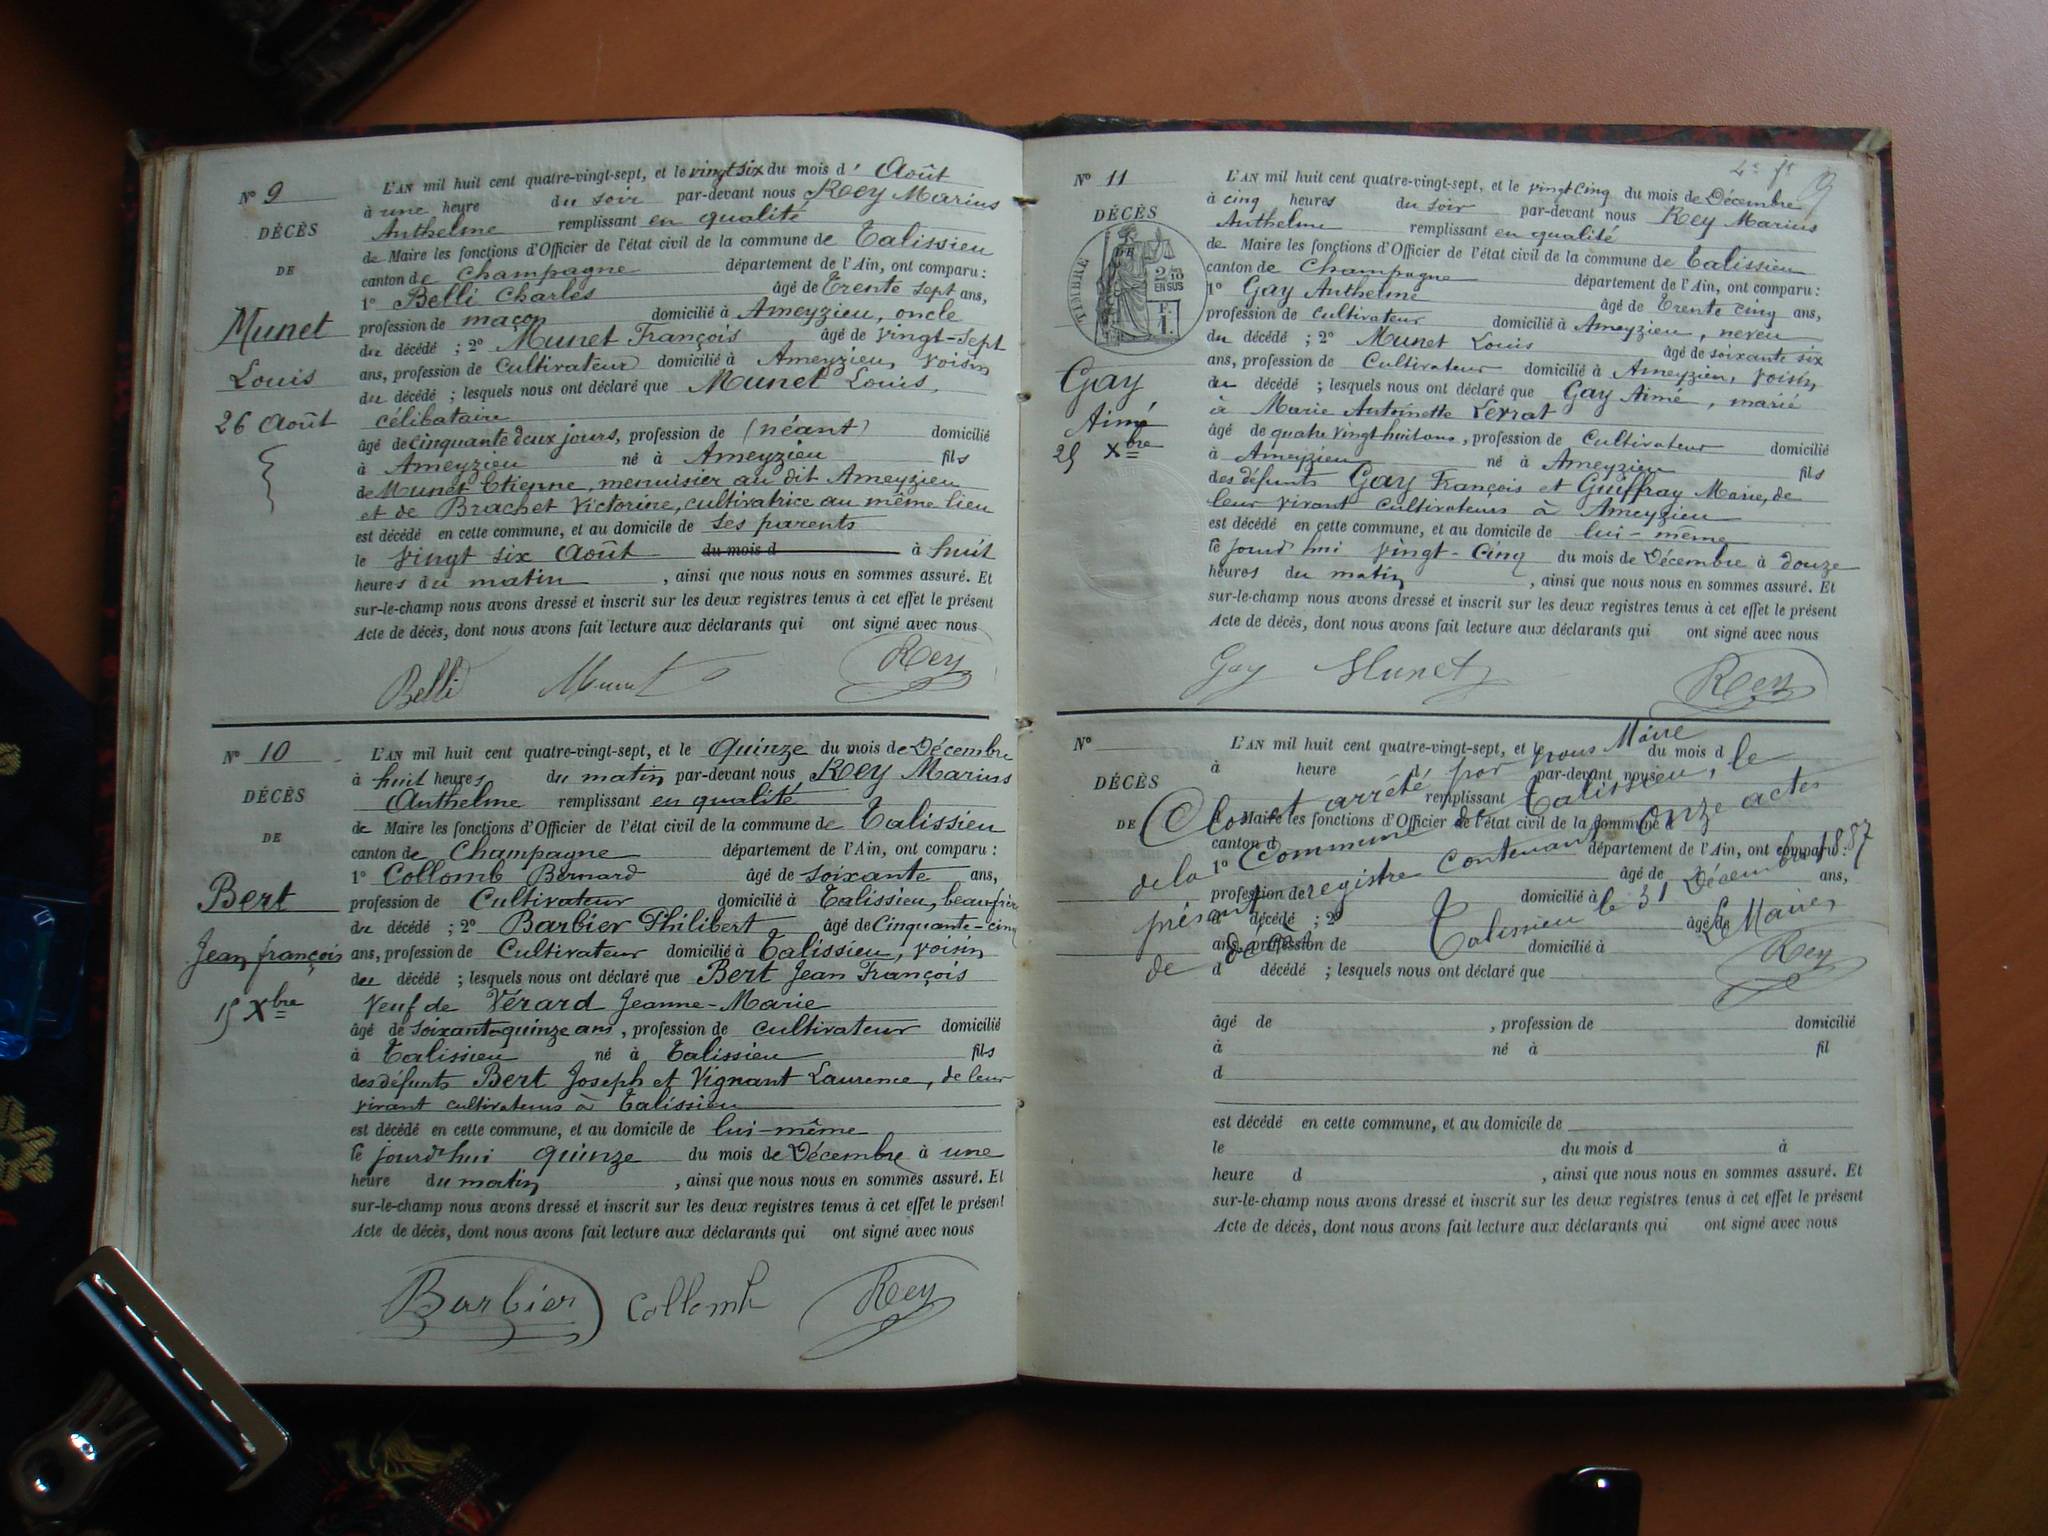 N° 9
DÉCÈS
DE
Munet
Louis
26 Août
L'AN mil huit cent quatre-vingt-sept, et le vingt six du mois d' Août
à une heure du soir par-devant nous Rey Marius
Anthelme remplissant en qualité
de Maire les fonctions d'Officier de l'état civil de la commune de Talissieu
canton de Champagne département de l'Ain, ont comparu :
1° Belli Charles âgé de Trente sept ans,
profession de maçon domicilié à Ameyzieu, oncle
du décédé ; 2° Munet François âgé de vingt-sept
ans, profession de Cultivateur domicilié à Ameyzieu, voisin
du décédé ; lesquels nous ont déclaré que Munet Louis,
célibataire
âgé de cinquante deux jours, profession de (néant) domicilié
à Ameyzieu né à Ameyzieu fils
de Munet Etienne, menuisier au dit Ameyzieu
et de Brachet Victorine, cultivatrice au même lieu
est décédé en cette commune, et au domicile de ses parents
le vingt six Août du mois d à huit
heures du matin , ainsi que nous nous en sommes assuré. Et
sur-le-champ nous avons dressé et inscrit sur les deux registres tenus à cet effet le présent
Acte de décès, dont nous avons fait lecture aux déclarants qui ont signé avec nous
Belli Munet Rey
N° 10
DÉCÈS
DE
Bert
Jean françois
15 Xbre
L'AN mil huit cent quatre-vingt-sept, et le Quinze du mois de Décembre
à huit heures du matin par-devant nous Rey Marius
Anthelme remplissant en qualité
de Maire les fonctions d'Officier de l'état civil de la commune de Talissieu
canton de Champagne département de l'Ain, ont comparu :
1° Collomb Bernard âgé de soixante ans,
profession de Cultivateur domicilié à Talissieu, beau frère
du décédé ; 2° Barbier Philibert âgé de Cinquante-cinq
ans, profession de Cultivateur domicilié à Talissieu, voisin
du décédé ; lesquels nous ont déclaré que Bert Jean François
Veuf de Vérard Jeanne-Marie
âgé de soixante-quinze ans, profession de cultivateur domicilié
à Talissieu né à Talissieu fils
des défunts Bert Joseph et Vignant Laurence, de leur
vivant cultivateurs à Talissieu
est décédé en cette commune, et au domicile de lui-même
le jourd'hui quinze du mois de Décembre à une
heure du matin , ainsi que nous nous en sommes assuré. Et
sur-le-champ nous avons dressé et inscrit sur les deux registres tenus à cet effet le présent
Acte de décès, dont nous avons fait lecture aux déclarants qui ont signé avec nous
Barbier Collomb Rey
N° 11
DÉCÈS
DE
TIMBRE
2/10
EN SUS
F.
1.
Gay
Aimé
25 Xbre
L'AN mil huit cent quatre-vingt-sept, et le vingt cinq du mois de Décembre
à cinq heures du soir par-devant nous Rey Marius
Anthelme remplissant en qualité
de Maire les fonctions d'Officier de l'état civil de la commune de Talissieu
canton de Champagne département de l'Ain, ont comparu :
1° Gay Anthelme âgé de Trente cinq ans,
profession de cultivateur domicilié à Ameyzieu, neveu
du décédé ; 2° Munet Louis âgé de soixante six
ans, profession de Cultivateur domicilié à Ameyzieu, voisin
du décédé ; lesquels nous ont déclaré que Gay Aimé, marié
à Marie Antoinette Serrat
âgé de quatre vingt huit ans, profession de Cultivateur domicilié
à Ameyzieu né à Ameyzieu fils
des défunts Gay François et Guiffray Marie, de
leur vivant cultivateurs à Ameyzieu
est décédé en cette commune, et au domicile de lui-même
le jourd'hui vingt-cinq du mois de Décembre à douze
heures du matin , ainsi que nous nous en sommes assuré. Et
sur-le-champ nous avons dressé et inscrit sur les deux registres tenus à cet effet le présent
Acte de décès, dont nous avons fait lecture aux déclarants qui ont signé avec nous
Gay Munet Rey
N°
DÉCÈS
DE
L'AN mil huit cent quatre-vingt-sept, et le du mois d
à heure d par-devant nous
remplissant
d Maire les fonctions d'Officier de l'état civil de la commune d
canton d département de l'Ain, ont comparu :
1° âgé de ans,
profession de domicilié à
d décédé ; 2° âgé de
ans, profession de domicilié à
d décédé ; lesquels nous ont déclaré que
âgé de , profession de domicilié
à né à fil
d
est décédé en cette commune, et au domicile de
le du mois d à
heure d , ainsi que nous nous en sommes assuré. Et
sur-le-champ nous avons dressé et inscrit sur les deux registres tenus à cet effet le présent
Acte de décès, dont nous avons fait lecture aux déclarants qui ont signé avec nous
Clos et arrêté par nous Maire
de la Commune de Talissieu, le
présent registre contenant onze actes
de décès
Talissieu le 31 Décembre 1887
Le Maire,
Rey